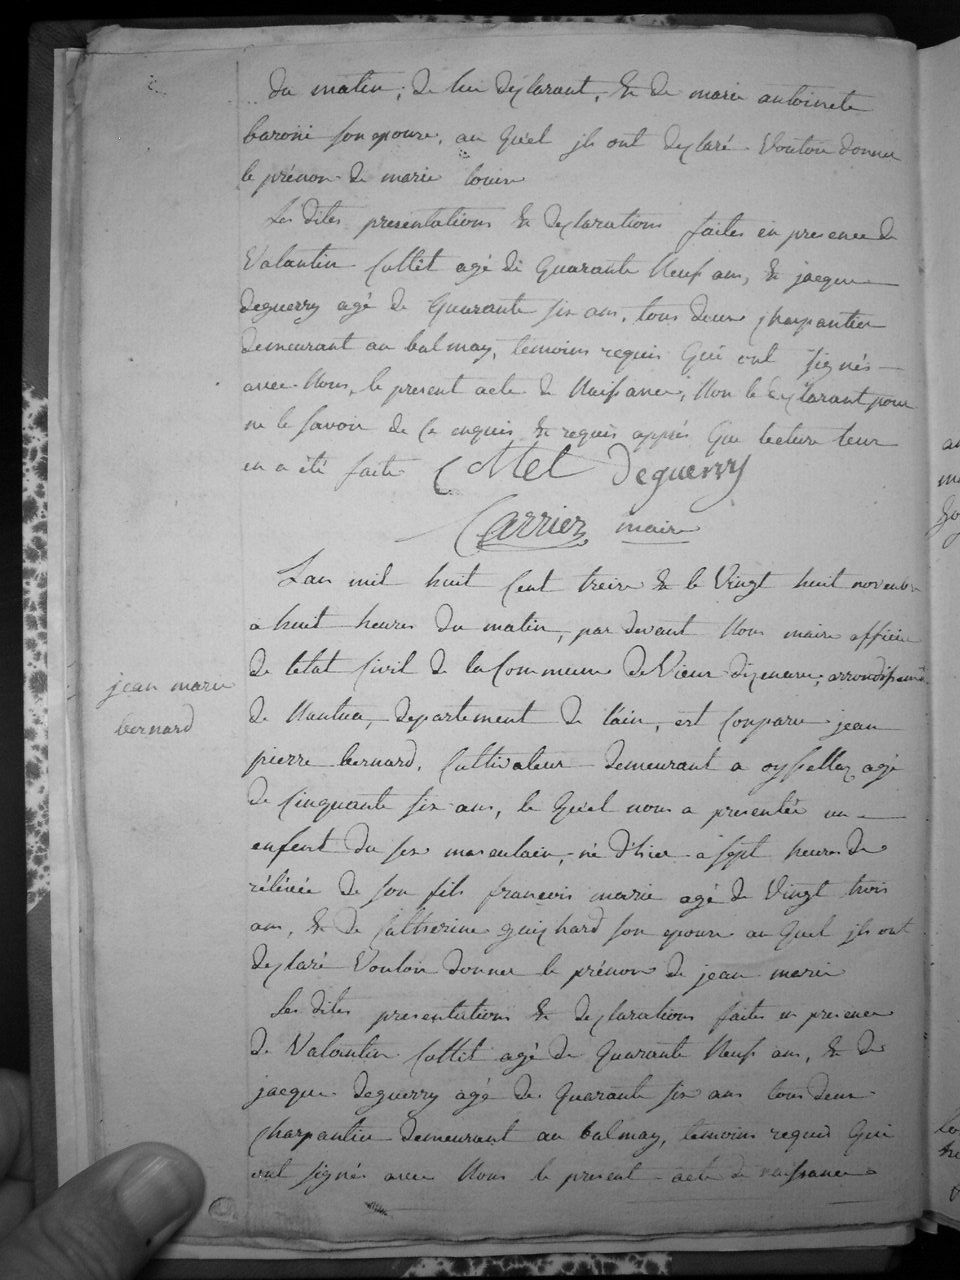 du matin, de lui declarant, & de marie antoinete
baroni son epouse, au quel ils ont declaré vouloir donner
le prénom de marie louise
Les dites presentations & declarations faites en presence de
Valantin Collet agé de quarante neuf ans, & jacque
deguerry agé de quarante six ans, tous deux charpantier
demeurant au balmay, témoins requis qui ont signés
avec nous, le present acte de naissance, non le declarant pour
ne le savoir de ce enquis & requis apprés que lecture leur
en a été faite Collet Deguerry
Carrier maire
L'an mil huit cent treize & le vingt huit novembre
a huit heures du matin, par devant nous maire officier
de l'etat civil de la Commune de Vieux dizenave, arrondissemt
de Nantua, departement de l'ain, est comparu jean
pierre bernard, cultivateur demeurant a oyssellaz agé
de cinquante six ans, le quel nous a presenté un
enfent du sexe masculain, né d'hier a sept heures de
rélévée de son fils françois marie agé de vingt trois
ans, & de Catherine guichard son epouse au quel ils ont
declaré vouloir donner le prénom de jean marie
Les dites presentations & declarations faites en presence
de Valantin Collet agé de quarante neuf ans, & de
jacque deguerry agé de quarante six ans tous deux
charpantier demeurant au balmay, temoins requis qui
ont signés avec nous le present acte de naissance
jean marie
bernard